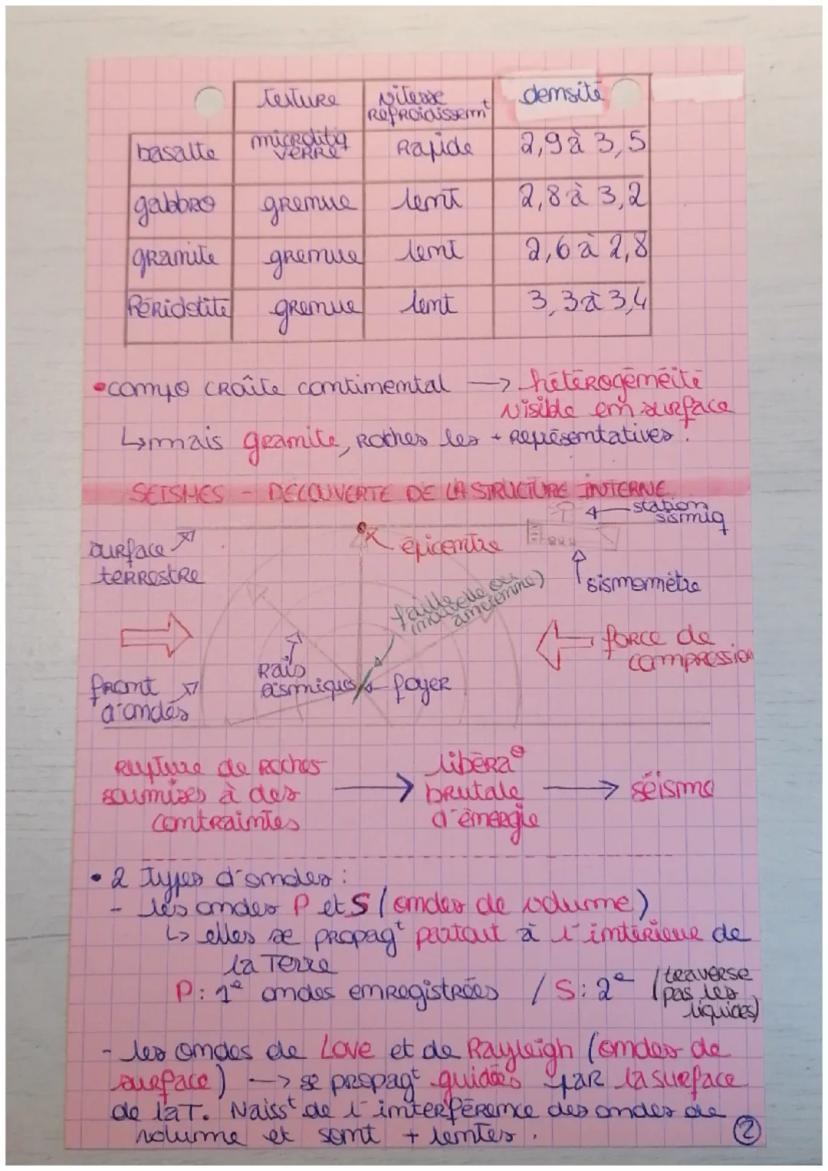 texture vitesse refroidissemt densité
basalte microlitiq verre Rapide 2,9 à 3,5
gabbro grenue lent 2,8 à 3,2
granite grenue lent 2,6 à 2,8
Péridotite grenue lent 3,3 à 3,4
• compo croûte continental → hétérogénéité
visible en surface
↳ mais granite, roches les + représentatives.
SEISMES - DECOUVERTE DE LA STRUCTURE INTERNE
station
sismiq
surface
terrestre
épicentre
sismomètre
faille (nouvelle ou
ancienne)
force de
compression
front
d'ondes
Rais
sismiques
foyer
rupture de roches
soumises à des
contraintes
→ libéra°
brutale
d'énergie
→ séisme
• 2 types d'ondes :
- les ondes P et S (ondes de volume)
↳ elles se propagt partout à l'intérieur de
la Terre
P : 1e ondes enregistrées / S : 2e (traverse
pas les
liquides)
- les ondes de Love et de Rayleigh (ondes de
surface) → se propagt guidées par la surface
de la T. Naisst de l'interférence des ondes de
volume et sont + lentes.
2